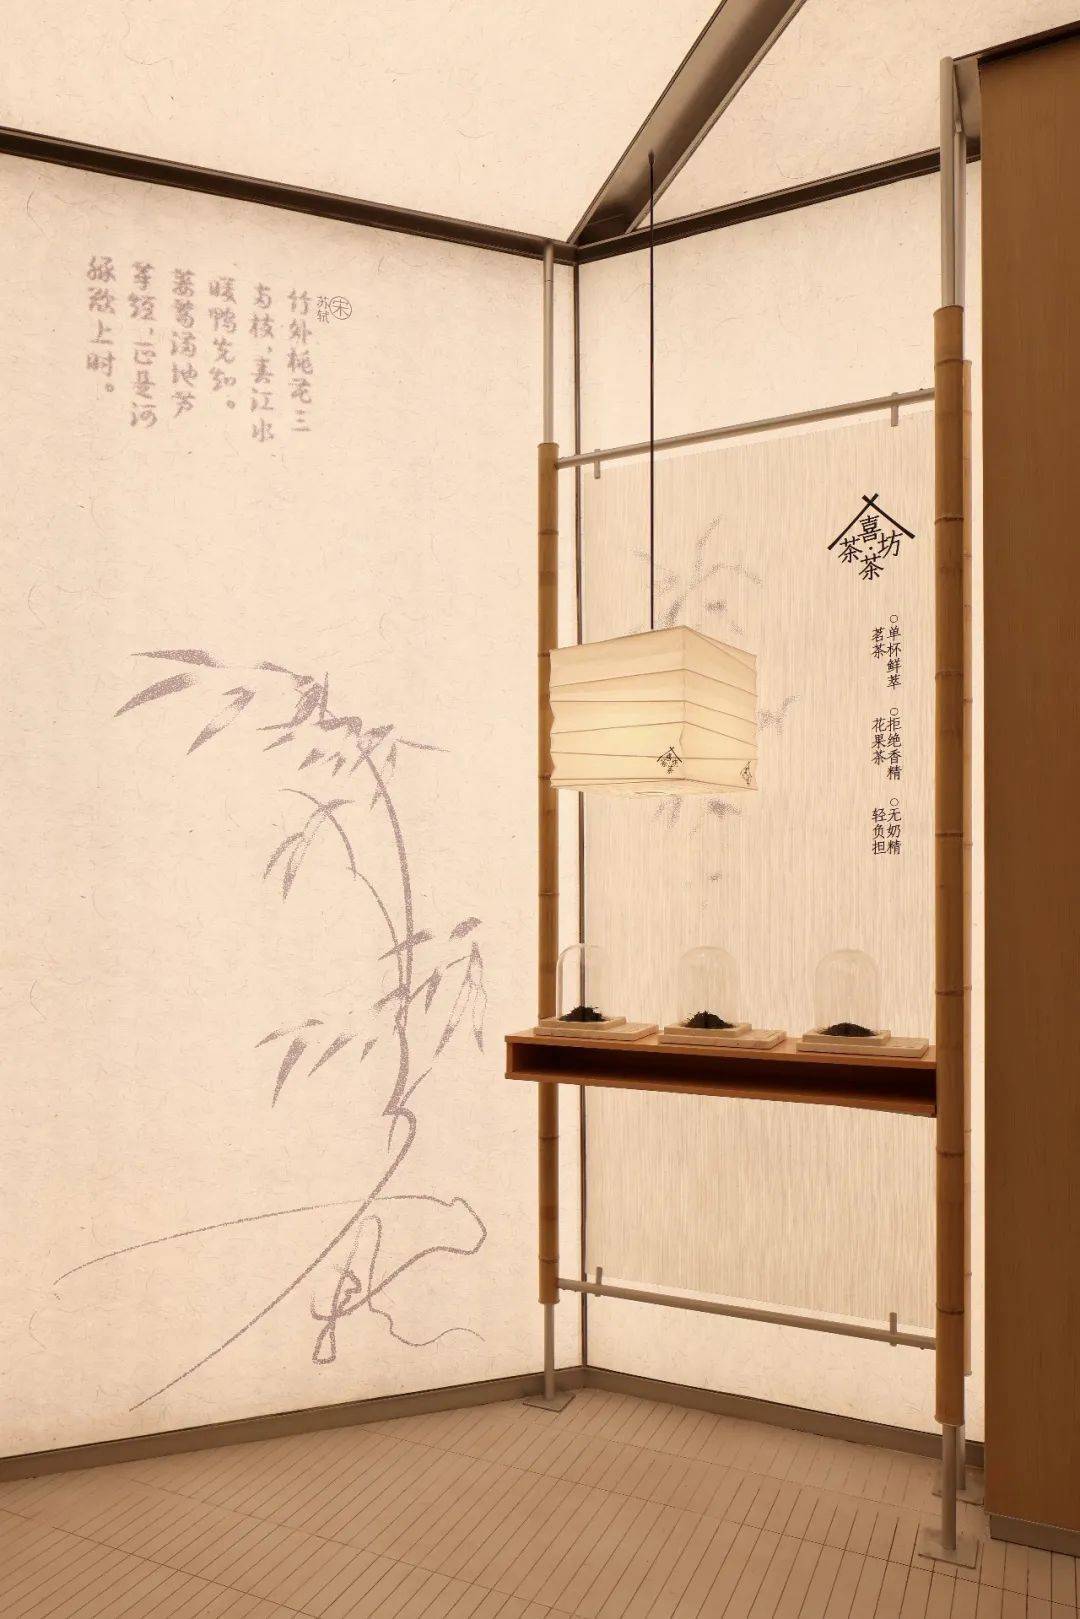 宋
苏轼
竹外桃花三
两枝，春江水
暖鸭先知。
蒌蒿满地芦
芽短，正是河
豚欲上时。
喜茶·茶坊
○单杯鲜萃
茗茶
○拒绝香精
花果茶
○无奶精
轻负担
喜茶·茶坊